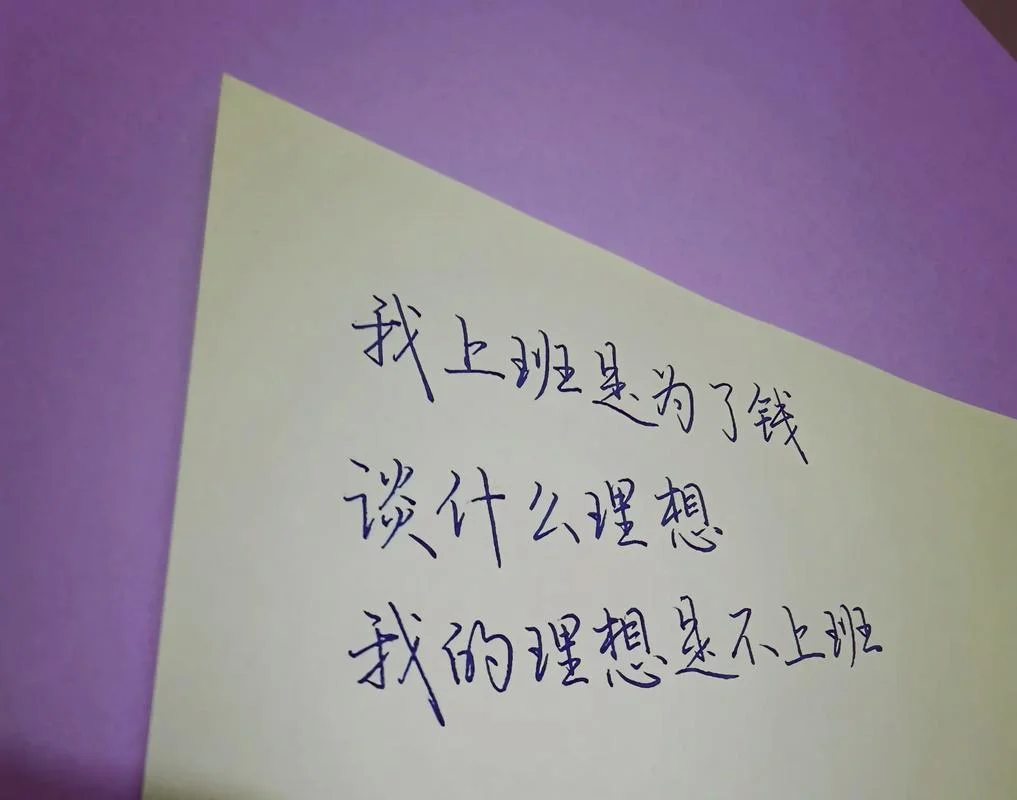 我上班是为了钱
谈什么理想
我的理想是不上班